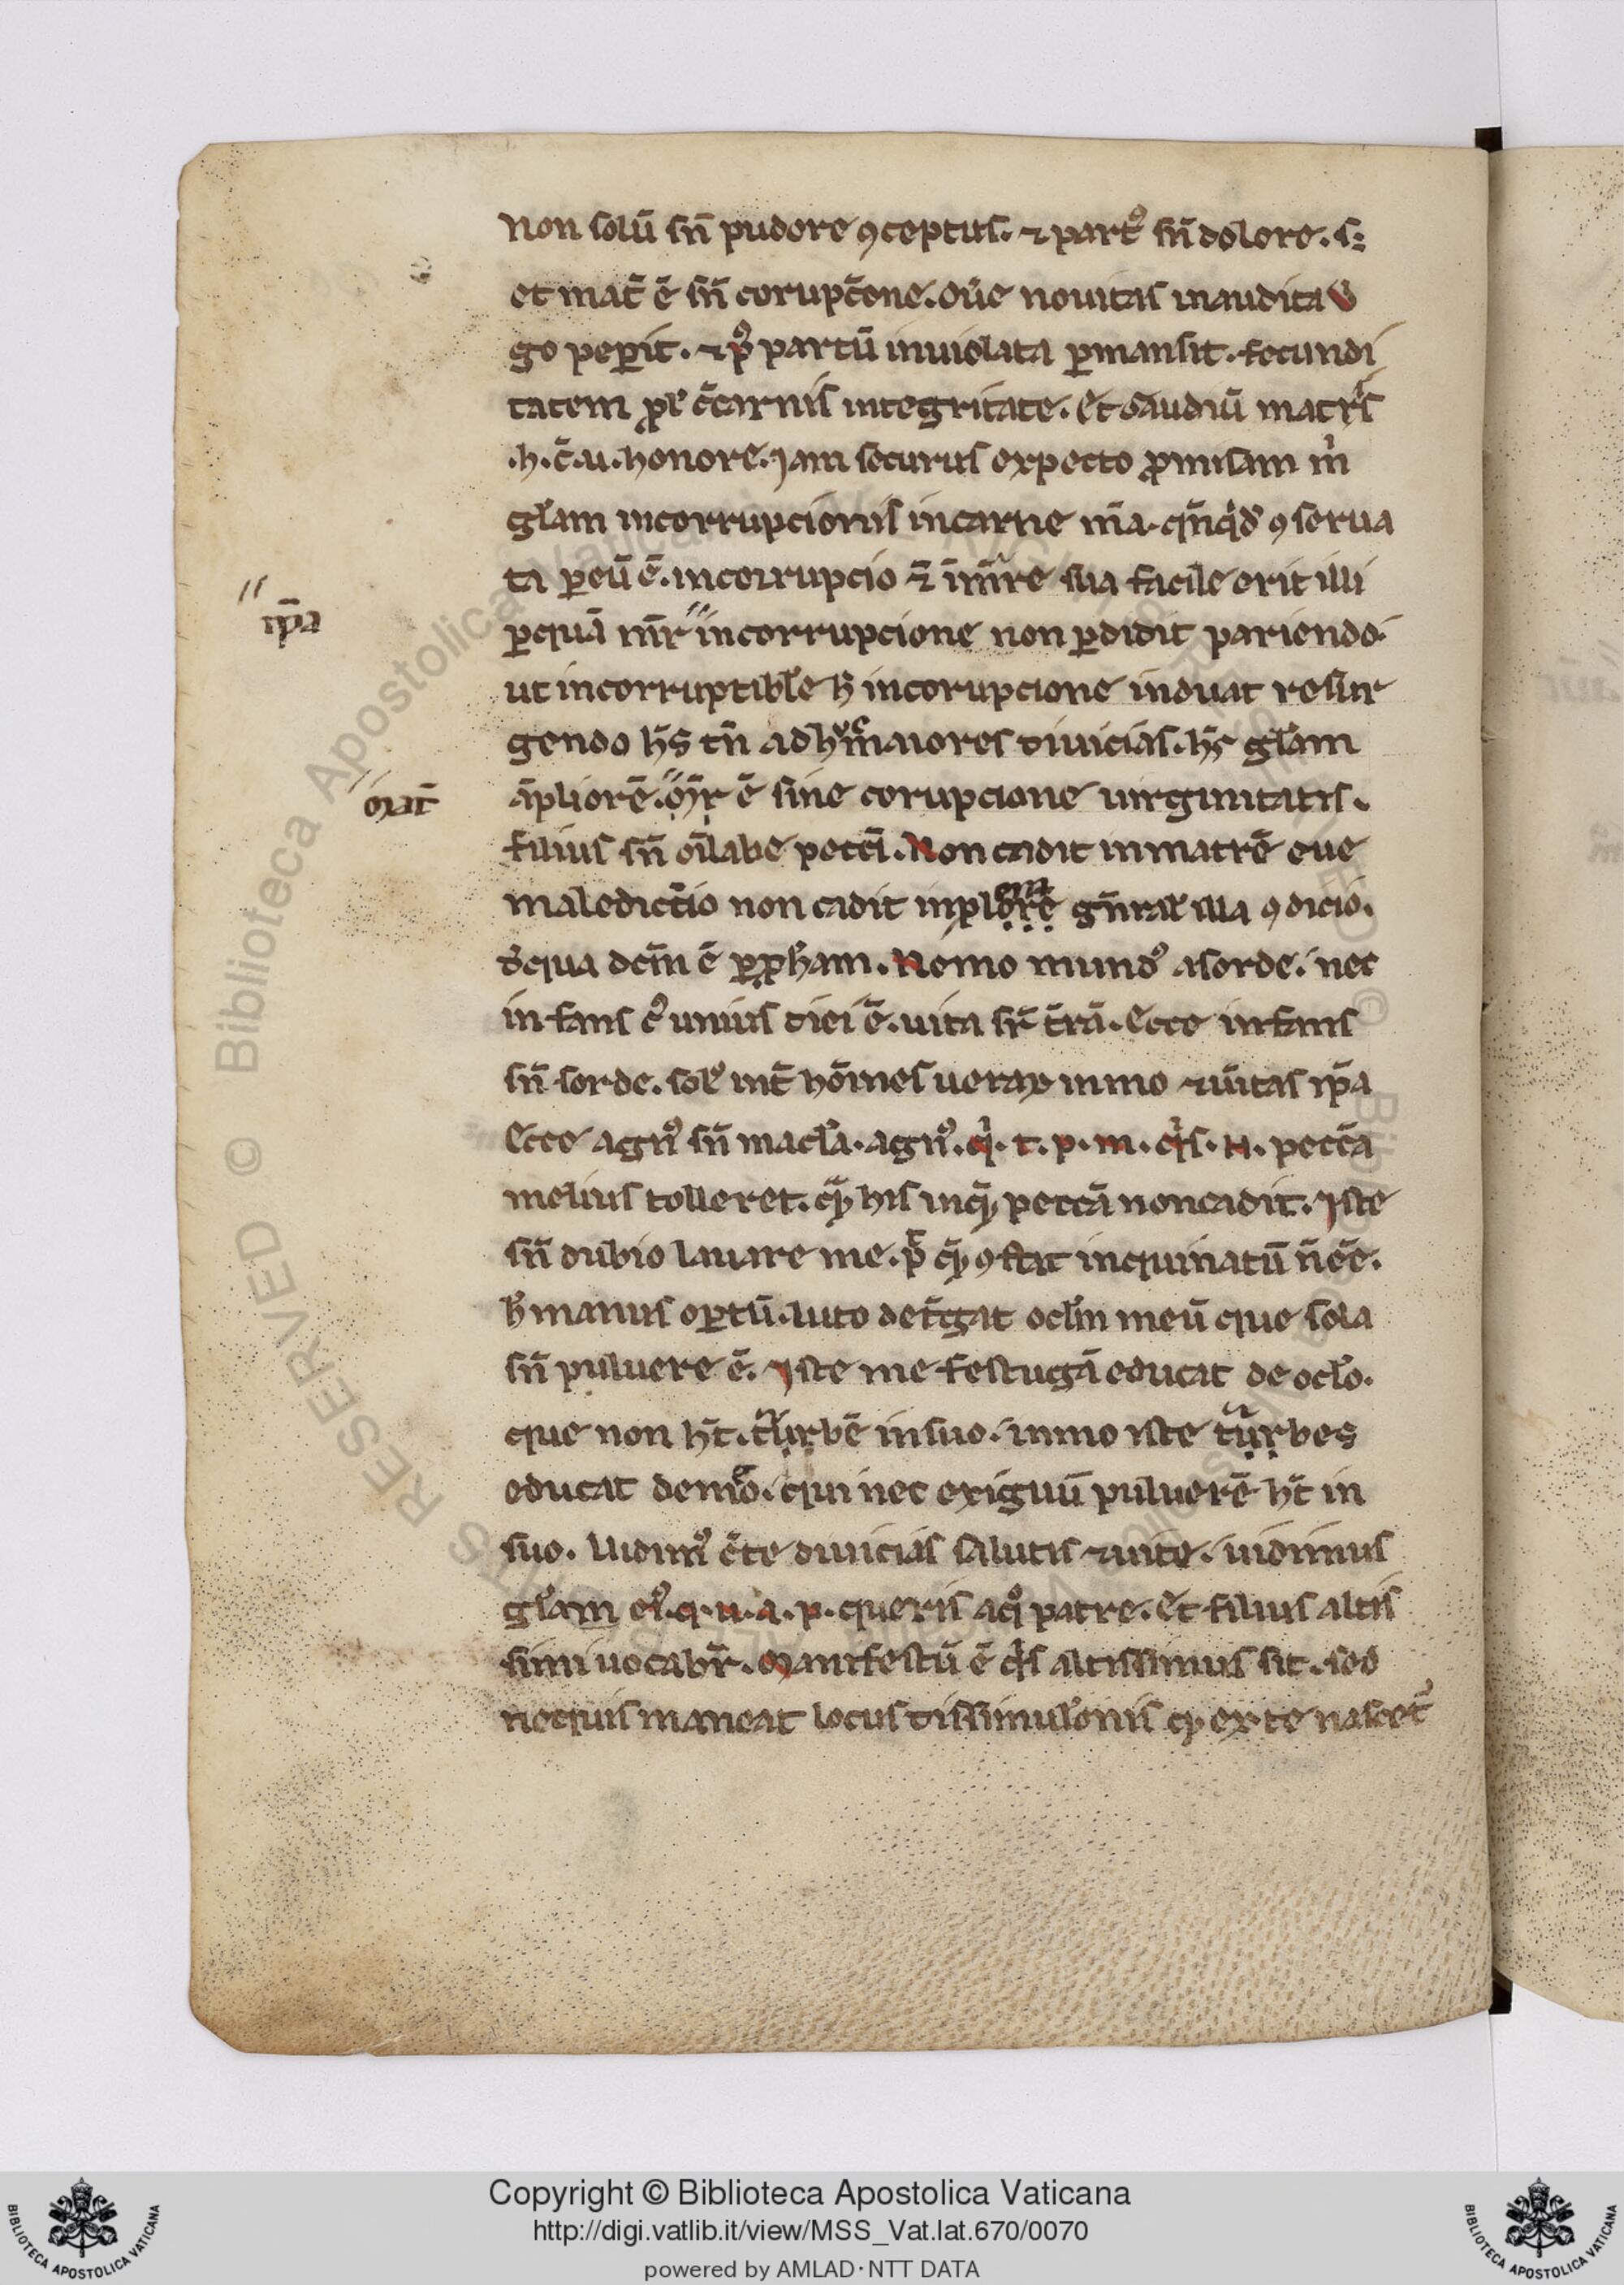 non solū sn̄ pudore ꝯceptus. ⁊ partꝰ sn̄ dolore. sꝫ
et mat̄ ē sn̄ corupc̄one. ou̅e nouitas inaudita v̾
go peperit. ⁊ pꝰ partū inuiolata ꝑmansit. fecundi
tatem ꝓle c̄ carnis integritate. et gaudiū matris
.h. c̄. u. honore. Jam securus expecto ꝓmisam m̄
gl̄am incorrupcionis in carne m̄a. qn̄qͥdē ꝯserua
ta ꝑ eū ē. incorrupcio ⁊ in mr̄e sua facile erit illi
ꝑ quā mr̄ incorrupcione non ꝑdidit pariendo.
ipa
ut incorruptibl̄e h̄ incorupcione induat resur
gendo hēs tn̄ adhuc maiores diuicias. hēs gl̄am
āpliorē. mr̄ ē sine corupcione uirginitatis.
mat̄
filius sn̄ oī labe pecc̄i. Non cadit in matrē eue
maledictio non cadit in prolem gn̄ral̄ illa ꝯdicio.
de qua dcm̄ ē ꝑ ꝓph̄am. Nemo mundꝰ a sorde. nec
infans cꝰ unius diei ē. uita sr̄ t̄rā. Ecce infans
sn̄ sorde. solꝰ int̄ hōines uerax immo ⁊ uītas ip̄a
Ecce agnꝰ sn̄ macl̄a. agnꝰ. qͥ. t. p. m. qͥs. N. pecc̄a
melius tolleret. qͣꝫ his in quē peccā non cadit. Iste
sn̄ dubio lauare me. pͭ quē ꝯstat inquinatū n̄ eē.
h̄ manus oꝑtū. luto det̄gat ocl̄m meū que sola
sn̄ puluere ē. Iste me festugā educat de ocl̄o.
que non ht̄. trabē in suo. immo iste trabes
educat de meo. qui nec exiguū puluerē ht̄ in
suo. Vidimꝰ c̄te diuicias salutis ⁊ uite. uidimus
gl̄am eiꝰ. q. u. a. p. queris a qͦ patre. Et filius altis
simi uocabr̄. Manifestū ē qͥs altissimus sit. sed
ne quis maneat locus dissimul̄onis qͥ ex te nascet̾
Copyright © Biblioteca Apostolica Vaticana
http://digi.vatlib.it/view/MSS_Vat.lat.670/0070
powered by AMLAD·NTT DATA